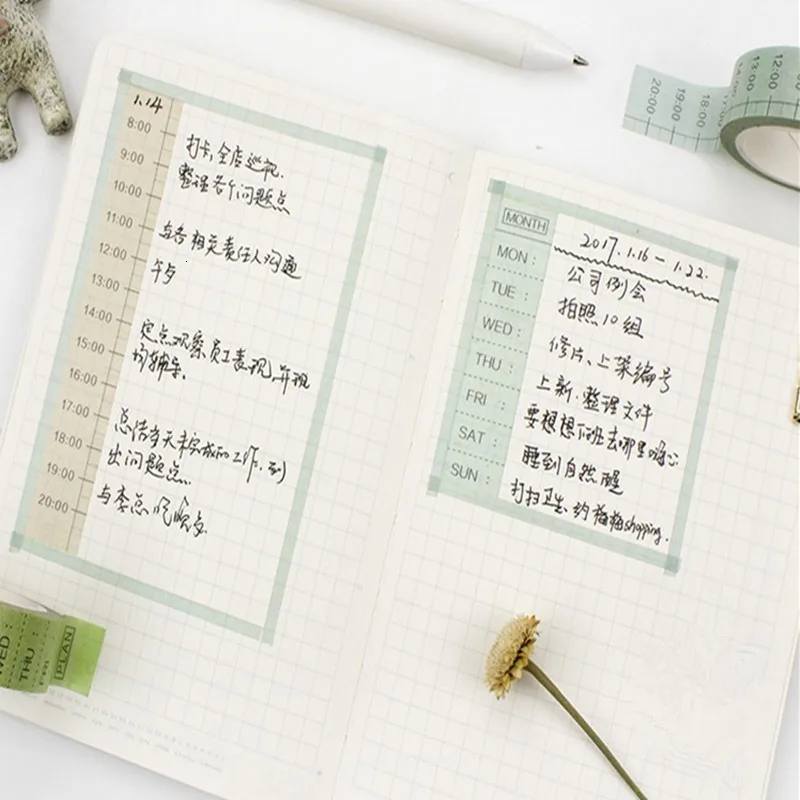 1.14
8:00
9:00
10:00
11:00
12:00
13:00
14:00
15:00
16:00
17:00
18:00
19:00
20:00
打卡,全店巡视.
整理各个问题点
与各相关责任人沟通
午
定点观察员工表现,并现
场辅导.
总结当天未完成的工作.列
出问题点.
与李总
MONTH
2017.1.16-1.22.
MON: 公司例会
TUE: 拍照10组
WED: 修片、上架编号
THU: 上新.整理文件
FRI: 要想想下班去哪里嗨
SAT: 睡到自然醒
SUN: 打扫卫生.约梅梅shopping.
12:00
13:00
18:00
19:00
20:00
WED:
THU:
FRI
PLAN